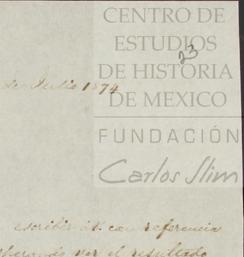 CENTRO DE
ESTUDIOS
DE HISTORIA
DE MEXICO
23
de Julio 1874
FUNDACIÓN
Carlos Slim
escribir á V. con referencia
por el resultado